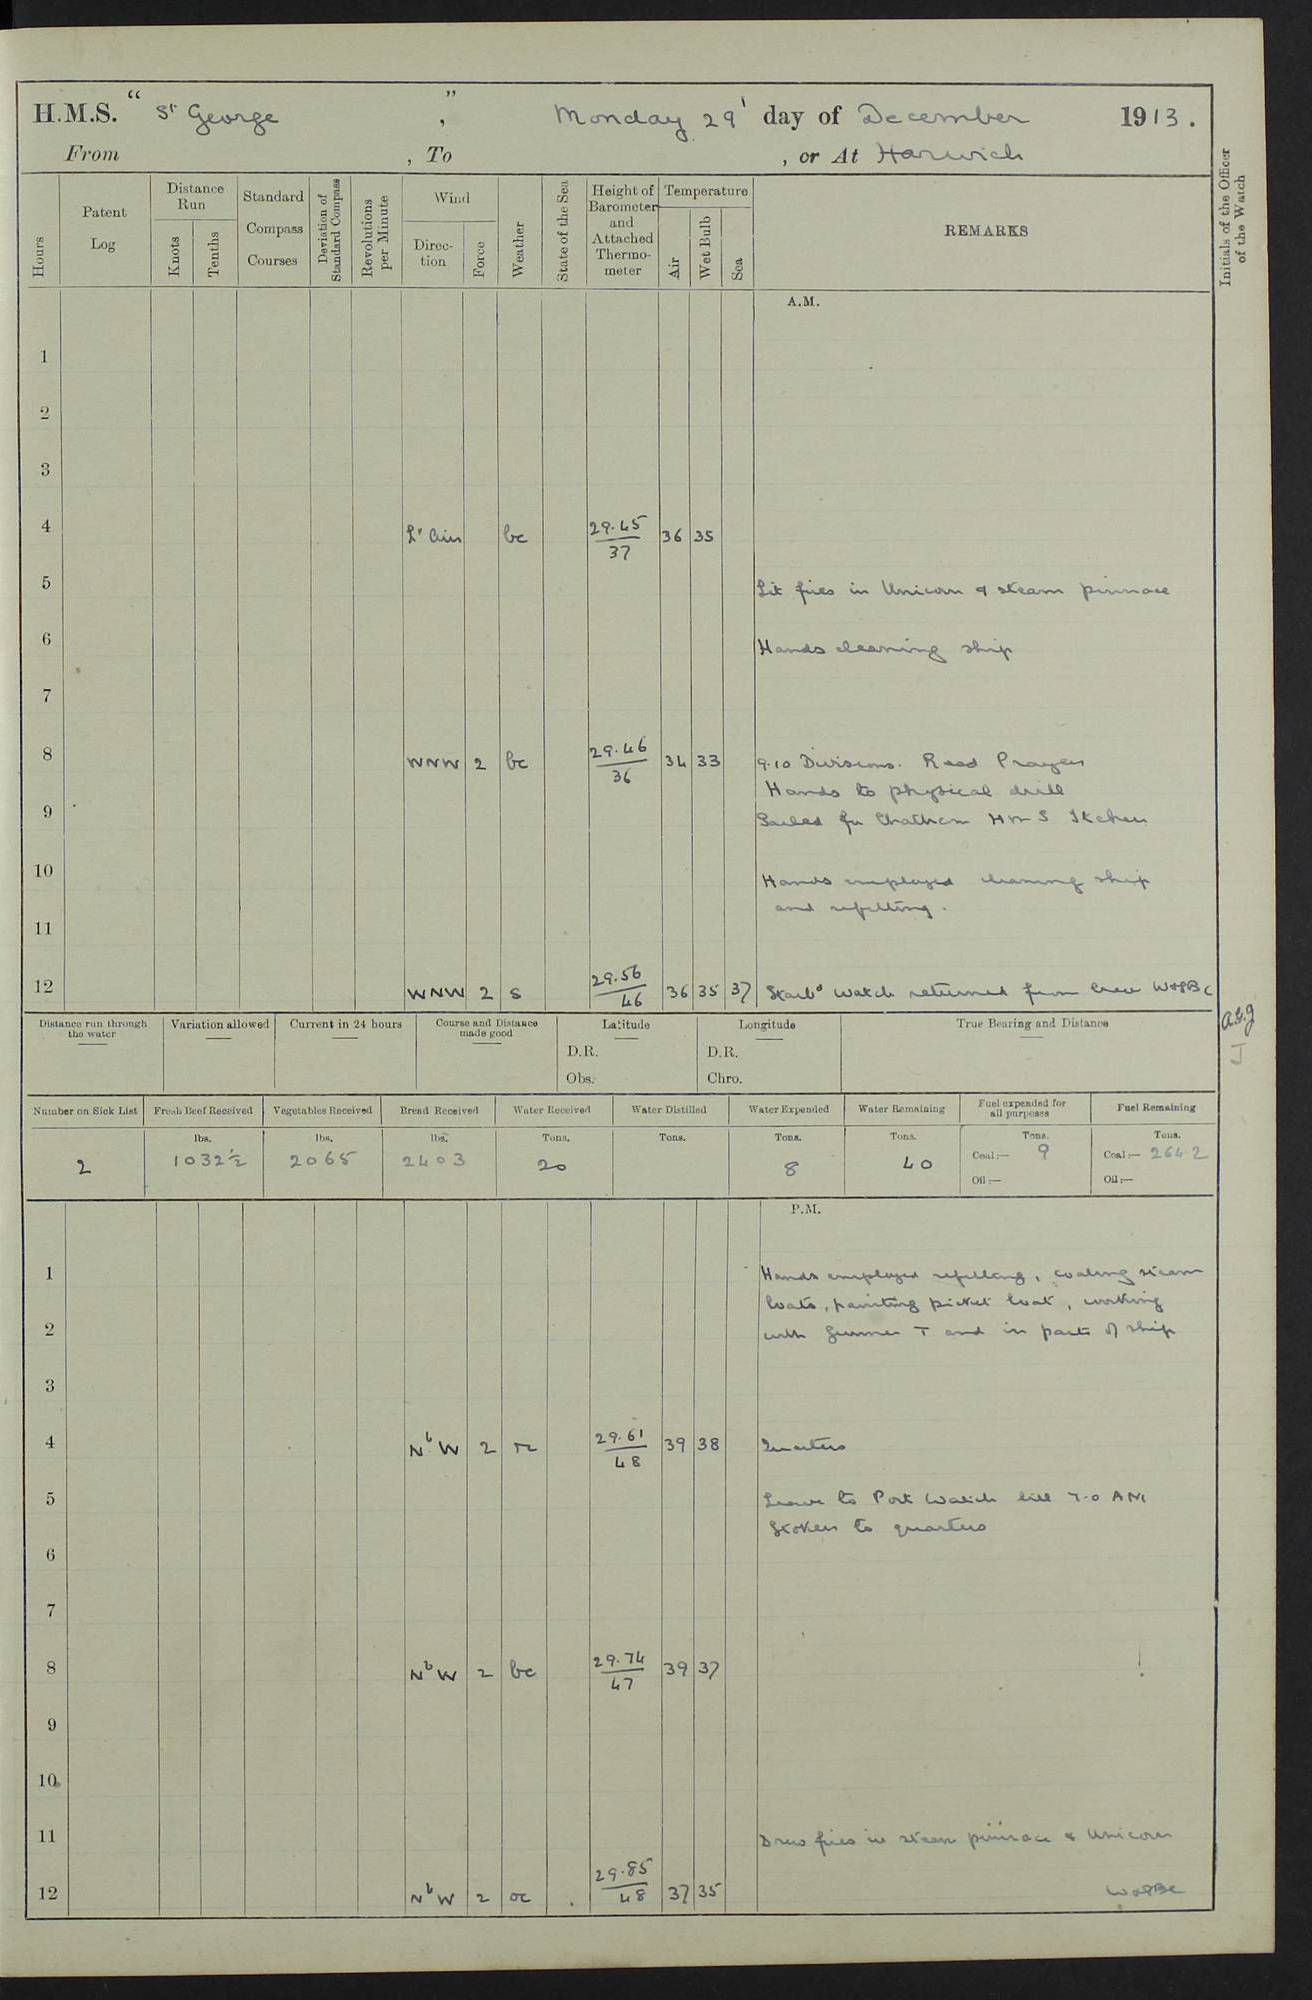 H.M.S. “ St George ”, Monday 29' day of December 1913.
From , To , or At Harwich
Hours
Patent Log
Distance Run
Knots
Tenths
Standard Compass Courses
Deviation of Standard Compass
Revolutions per Minute
Wind
Direction
Force
Weather
State of the Sea
Height of Barometer and Attached Thermometer
Temperature
Air
Wet Bulb
Sea
REMARKS
Initials of the Officer of the Watch
A.M.
1
2
3
4 Lt Airs bc 29.45/37 36 35
5 Lit fires in Unicorn & steam pinnace
6 Hands cleaning ship
7
8 WNW 2 bc 29.46/36 34 33 9.10 Divisions. Read Prayers
Hands to physical drill
9 Sailed for Chatham HMS Itchen
10 Hands employed cleaning ship
and refitting.
11
12 WNW 2 s 29.56/46 36 35 37 Starbd watch returned from leave
Distance run through the water
Variation allowed
Current in 24 hours
Course and Distance made good
Latitude
D.R.
Obs.
Longitude
D.R.
Chro.
True Bearing and Distance
Number on Sick List
Fresh Beef Received
Vegetables Received
Bread Received
Water Received
Water Distilled
Water Expended
Water Remaining
Fuel expended for all purposes
Fuel Remaining
2
lbs. 1032½
lbs. 2065
lbs. 2403
Tons. 20
Tons.
Tons. 8
Tons. 40
Tons. Coal:— 9
Oil:—
Tons. Coal:— 2642
Oil:—
P.M.
1 Hands employed refitting, coaling steam
boats, painting picket boat, working
2 with Gunner T and in parts of ship
3
4 NbW 2 rc 29.61/48 39 38 Quarters
5 Leave to Port Watch till 7.0 AM
Stokers to quarters
6
7
8 NbW 2 bc 29.74/47 39 37
9
10
11 Drew fires in steam pinnace & Unicorn
12 NbW 2 oc 29.85/48 37 35